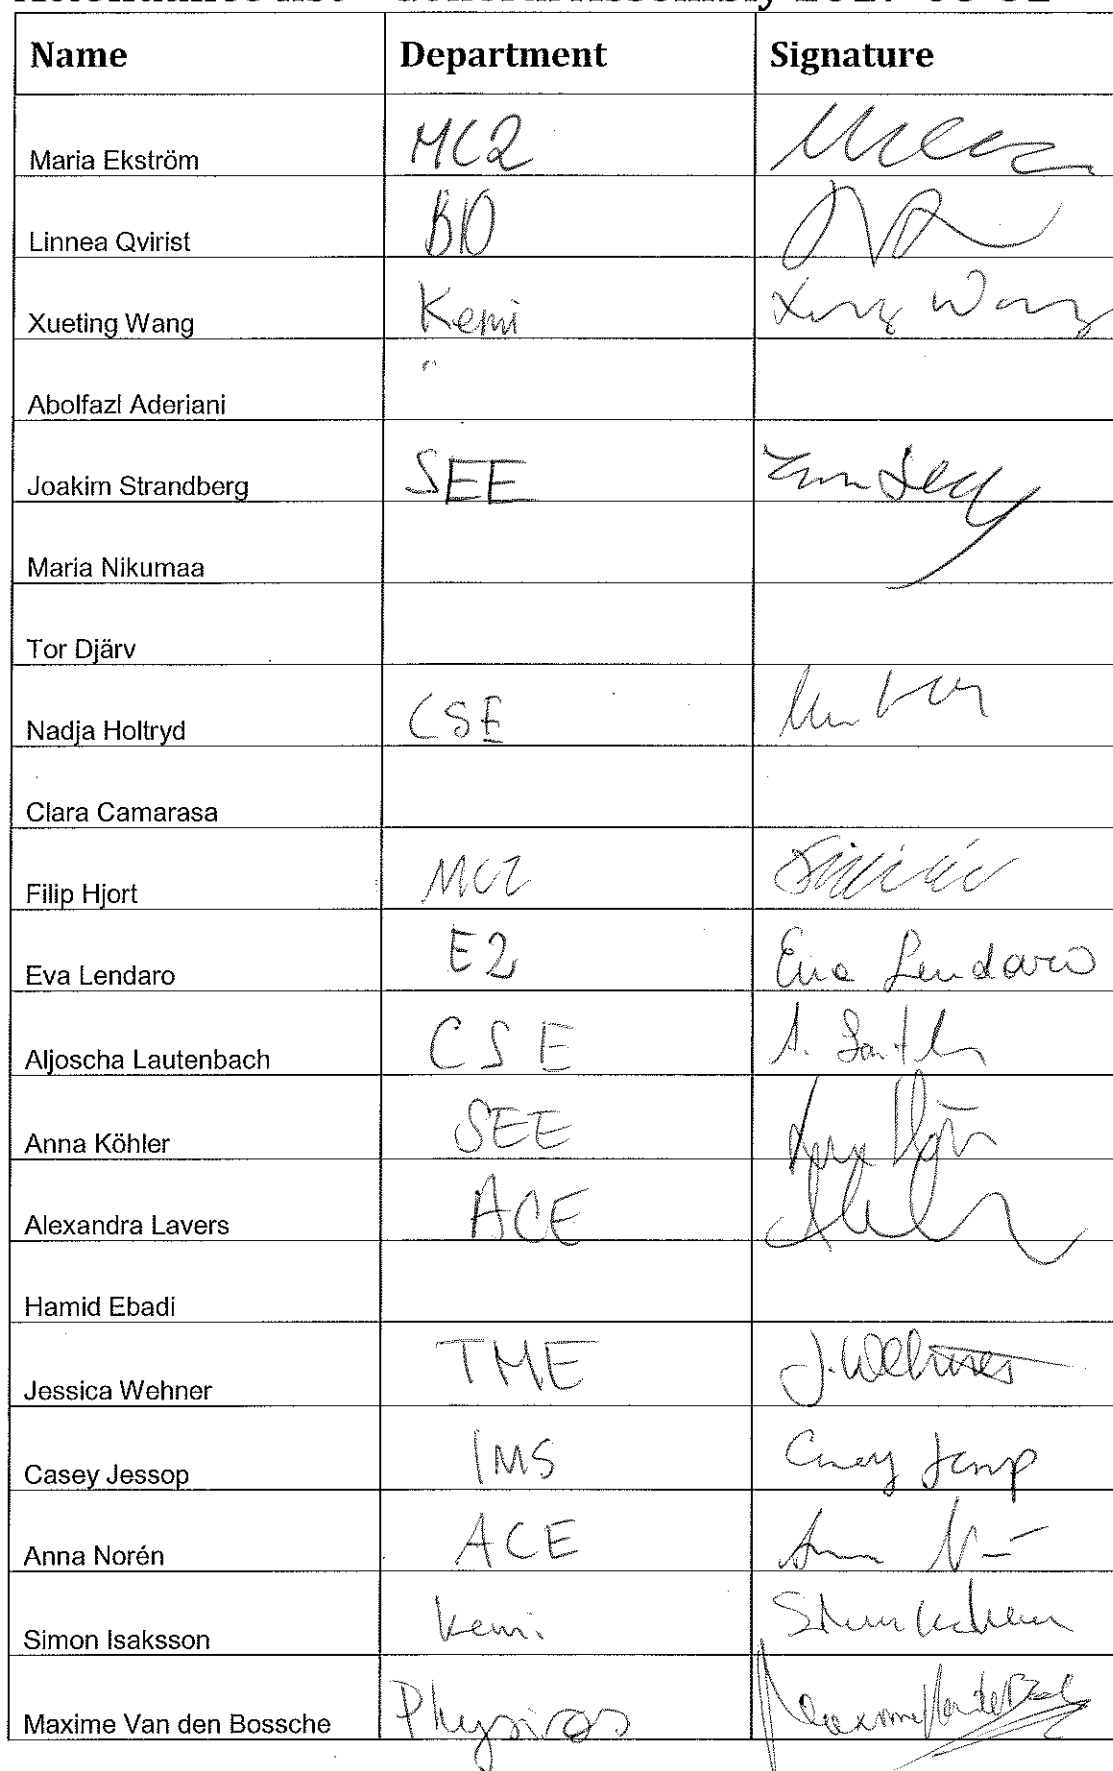 Name Department Signature
Maria Ekström MC2
Linnea Qvirist BIO
Xueting Wang Kemi Wang
Abolfazl Aderiani
Joakim Strandberg SEE
Maria Nikumaa
Tor Djärv
Nadja Holtryd CSE
Clara Camarasa
Filip Hjort MC2
Eva Lendaro E2 Eva Lendaro
Aljoscha Lautenbach CSE
Anna Köhler SEE
Alexandra Lavers ACE
Hamid Ebadi
Jessica Wehner TME J. Wehner
Casey Jessop IMS Casey Jessop
Anna Norén ACE
Simon Isaksson Kemi
Maxime Van den Bossche Physics